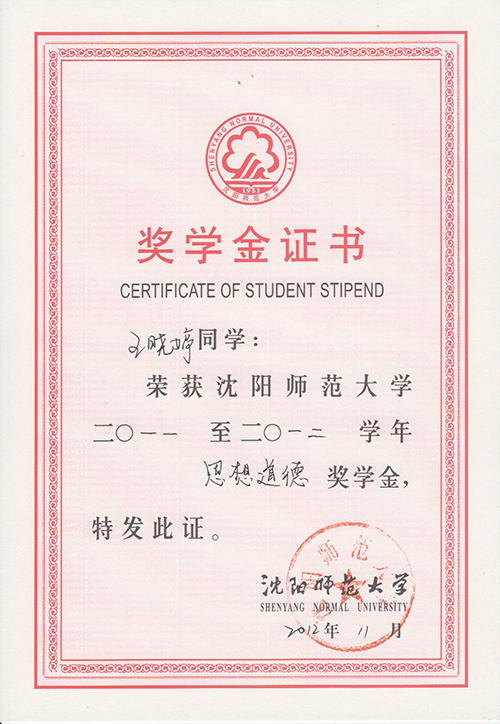 SHENYANG NORMAL UNIVERSITY
1951
沈阳师范大学
奖学金证书
CERTIFICATE OF STUDENT STIPEND
王晓婷同学：
荣获沈阳师范大学
二〇一一 至二〇一二 学年
思想道德 奖学金，
特发此证。
师范
沈阳师范大学
SHENYANG NORMAL UNIVERSITY
2012年 11 月